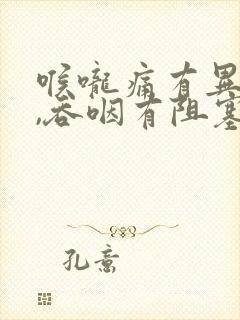 喉咙痛有异
,吞咽有阻塞
孔意